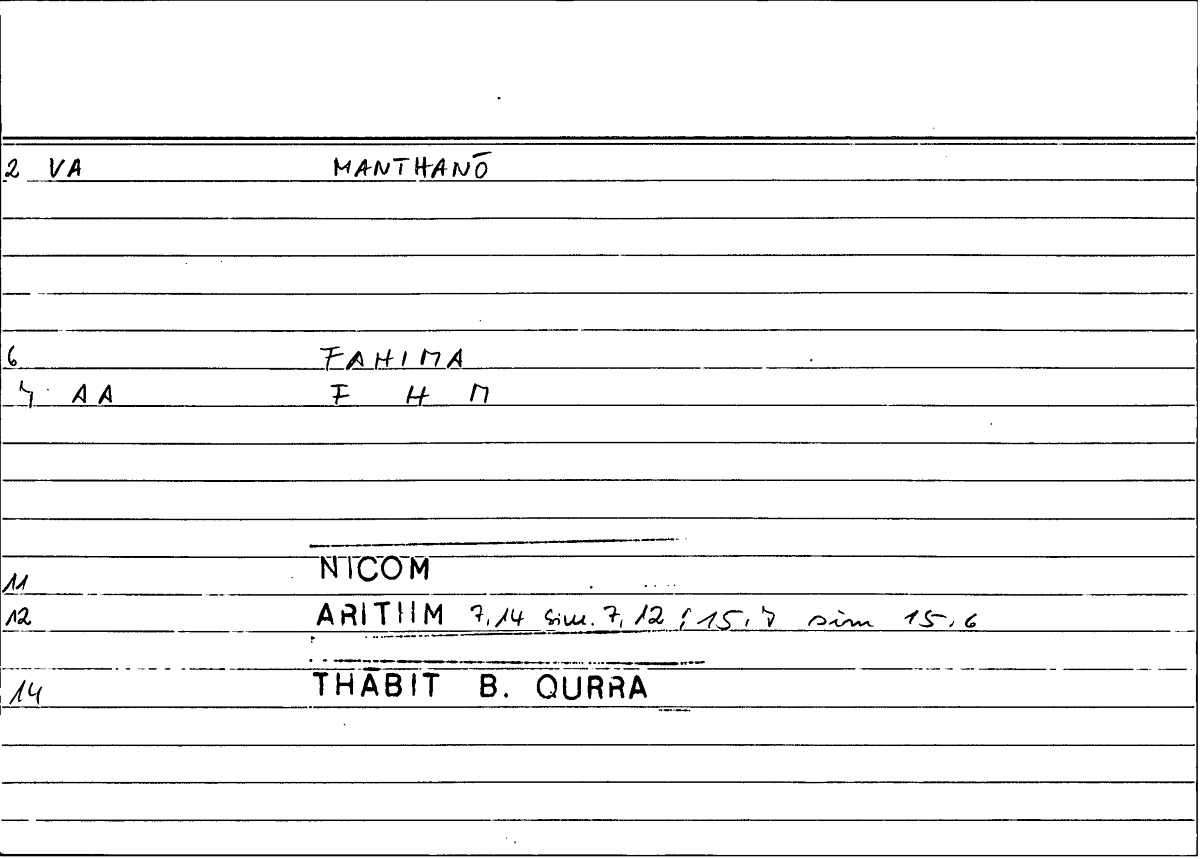 2 VA MANTHANŌ
6 FAHIMA
7 AA F H M
11 NICOM
12 ARITHM 7,14 sim. 7,12 ; 15,7 sim 15,6
14 THĀBIT B. QURRA